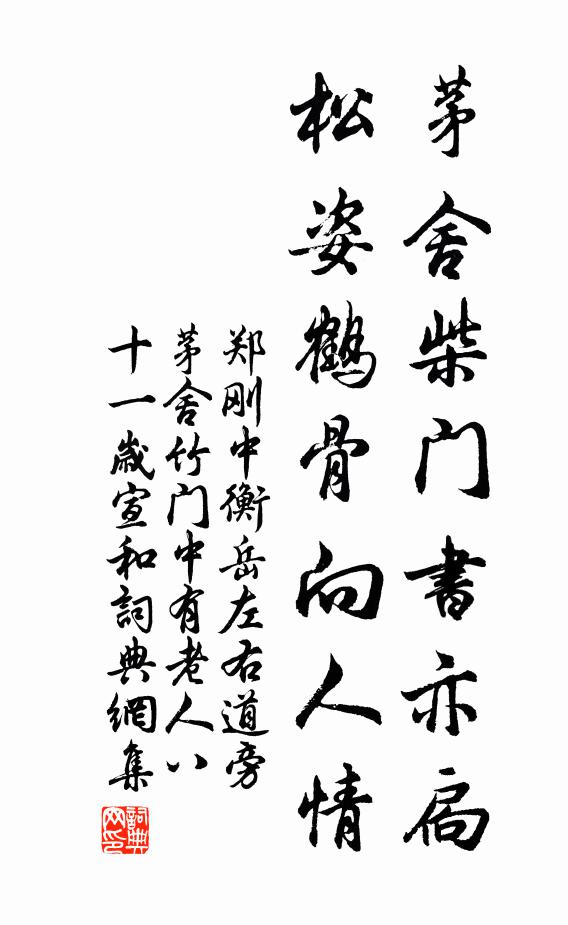 茅舍柴门書亦扃
松姿鹤骨向人情
郑刚中衡岳左右道旁
茅舍竹门中有老人八
十一歲宣和詞典網集
詞典网印